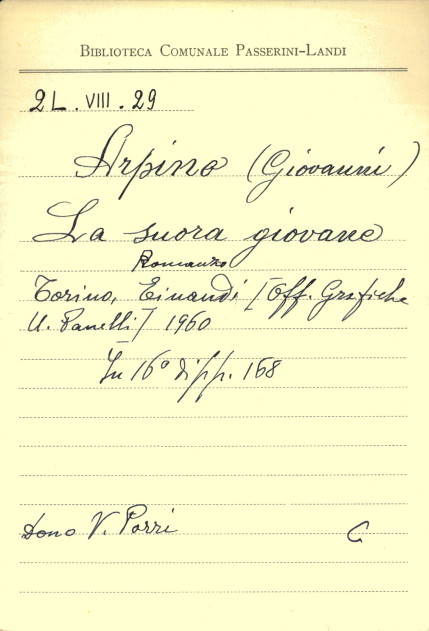 BIBLIOTECA COMUNALE PASSERINI-LANDI
2L. VIII. 29
Arpino (Giovanni)
La suora giovane
Romanzo
Torino, Einaudi [Off. Grafiche
U. Panelli] 1960
In 16° di pp. 168
Dono V. Porri
C